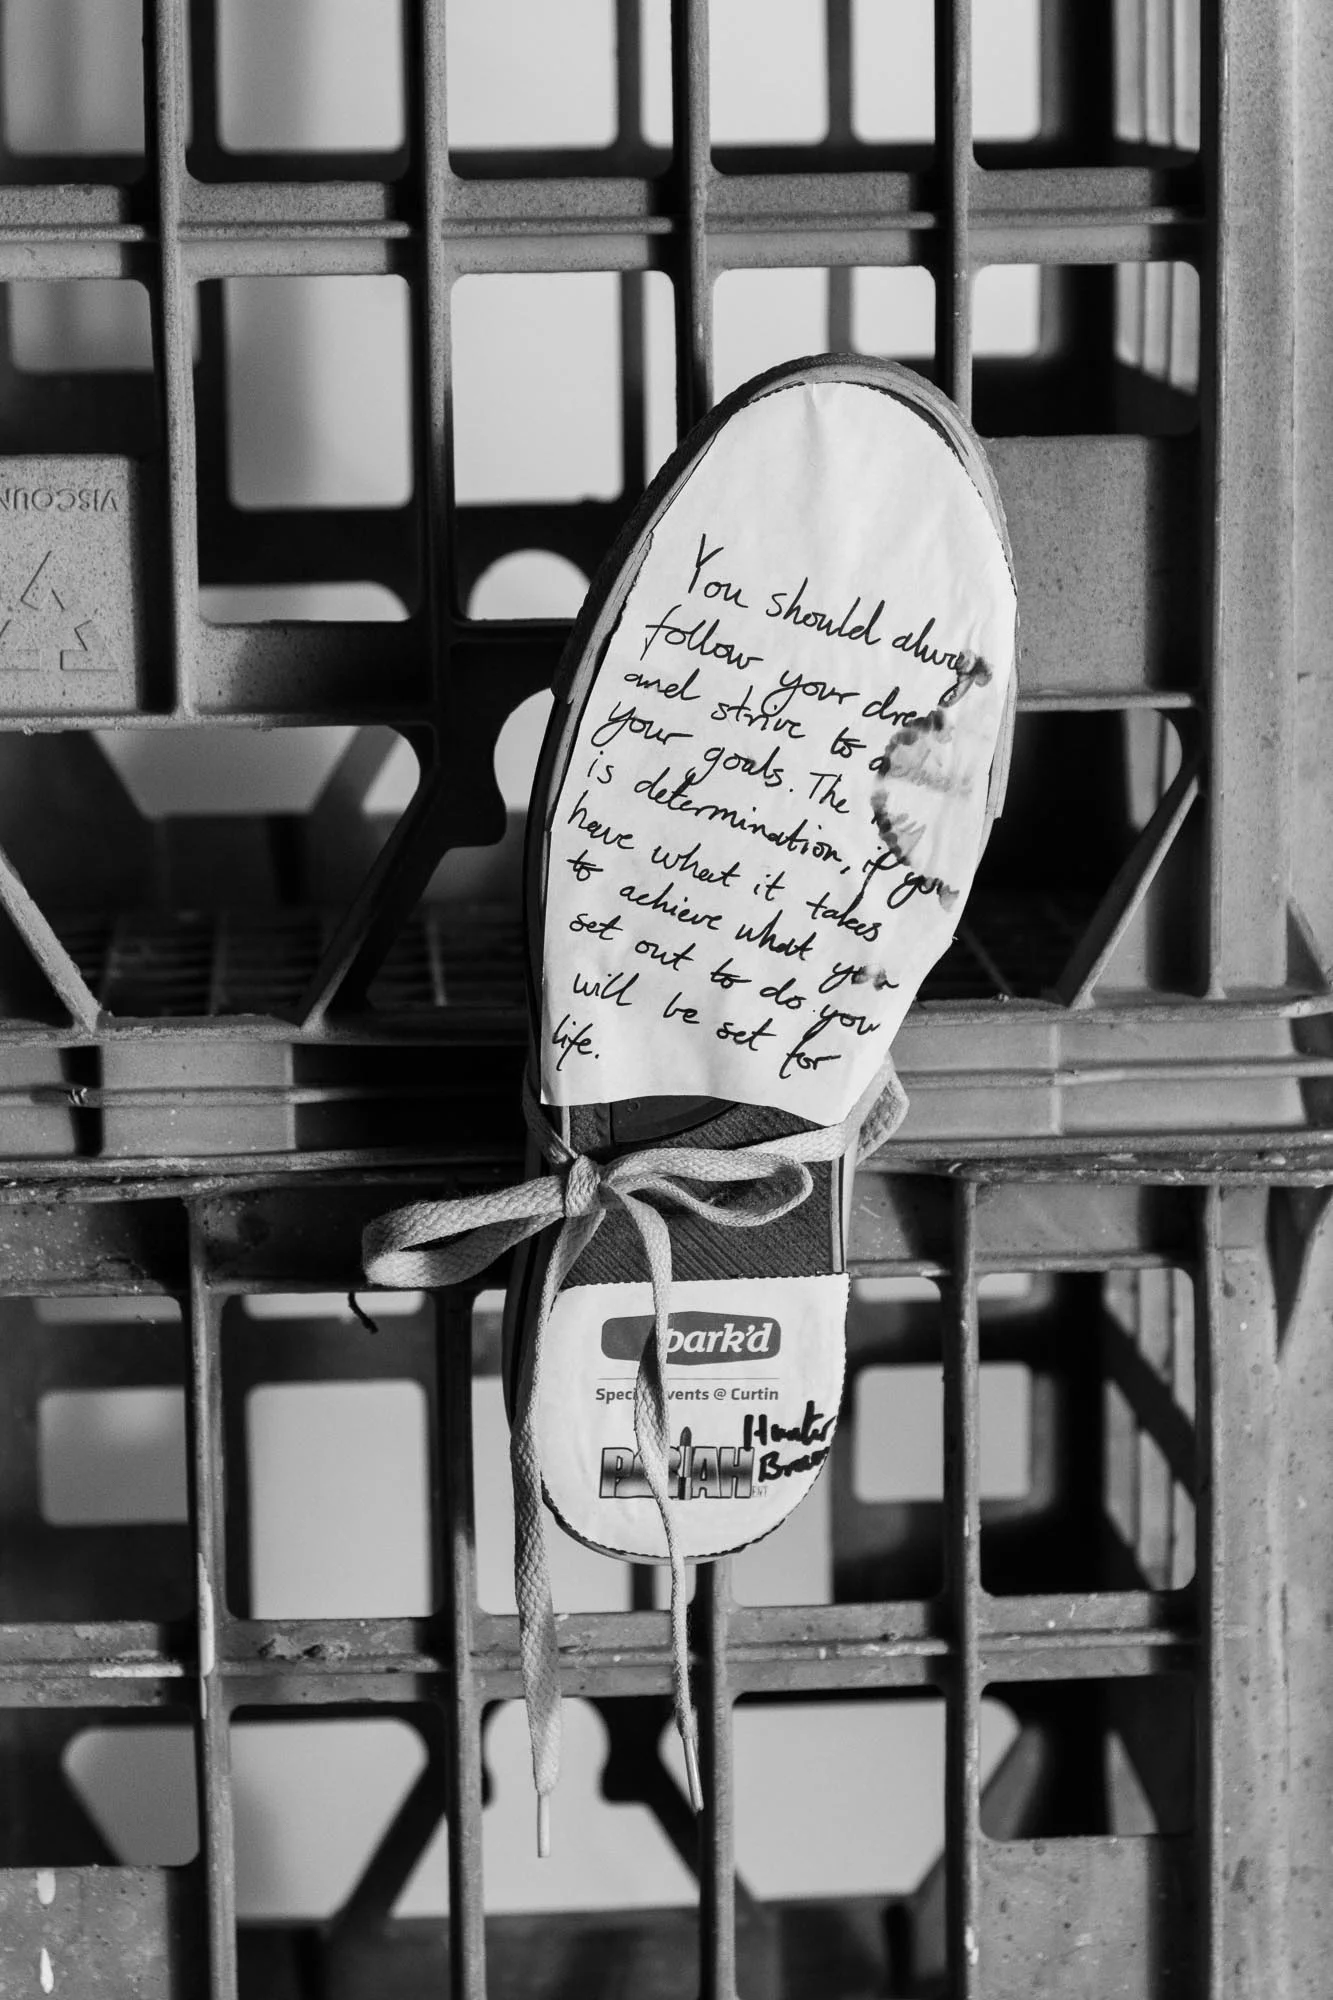 VISCOUN
You should always
follow your
and strive to
your goals. The
is determination, if you
have what it takes
to achieve what you
set out to do you
will be set for
life.
park'd
@ Curtin
Hunter